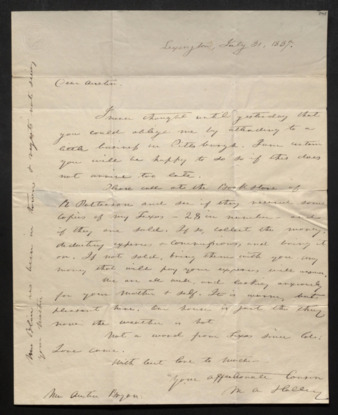 Lexington, July 31, 1837.
Dear Austin,
I never thought until yesterday that
you could oblige me by attending to a
little business in Pittsburgh. I am certain
you will be happy to do so if this does
not arrive too late.
Please call at the Book Store of
Patterson and see if they received some
copies of my Texas - 28 in number - and
if they are sold. If so, collect the money,
deducting expenses & commissions, and bring it
on. If not sold, bring them with you my
money will pay your expenses
We are all well and looking anxiously
for your mother & self. It is a warm, but
pleasant time. Our house is just the thing
now the weather is hot.
Not a word from Texas since Col.
Love came.
With best love to mother
Your affectionate Cousin
M. A. Holley
Mr. Austin Bryan
Mrs. are been in & regrets not seeing
your mother